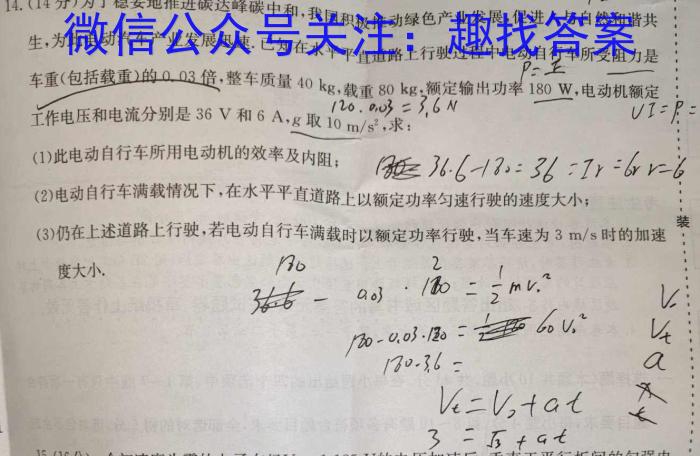 14.(14分)为了稳妥地推进碳达峰碳中和,我国积极推动绿色产业发展,促进人与自然和谐共
微信公众号关注:趣找答案
生,为 电动 车产业发展迅速.已知在水平平直道路上行驶过程中电动自行车所受阻力是
车重(包括载重)的0.03倍,整车质量40 kg,载重80 kg,额定输出功率180 W,电动机额定
120.0.03=3.6N
UI=P=
工作电压和电流分别是36 V和6 A,g取10 m/s²,求:
(1)此电动自行车所用电动机的效率及内阻;
36.6-180=36=Ir=6r r=6
(2)电动自行车满载情况下,在水平平直道路上以额定功率匀速行驶的速度大小;
(3)仍在上述道路上行驶,若电动自行车满载时以额定功率行驶,当车速为3 m/s时的加速
度大小.
装
180
- 0.03 = ½mv₀²
180-0.03·120 = 60V₀²
180-3.6=
Vt=V0+at
3=√3+at
V0
Vt
a
t